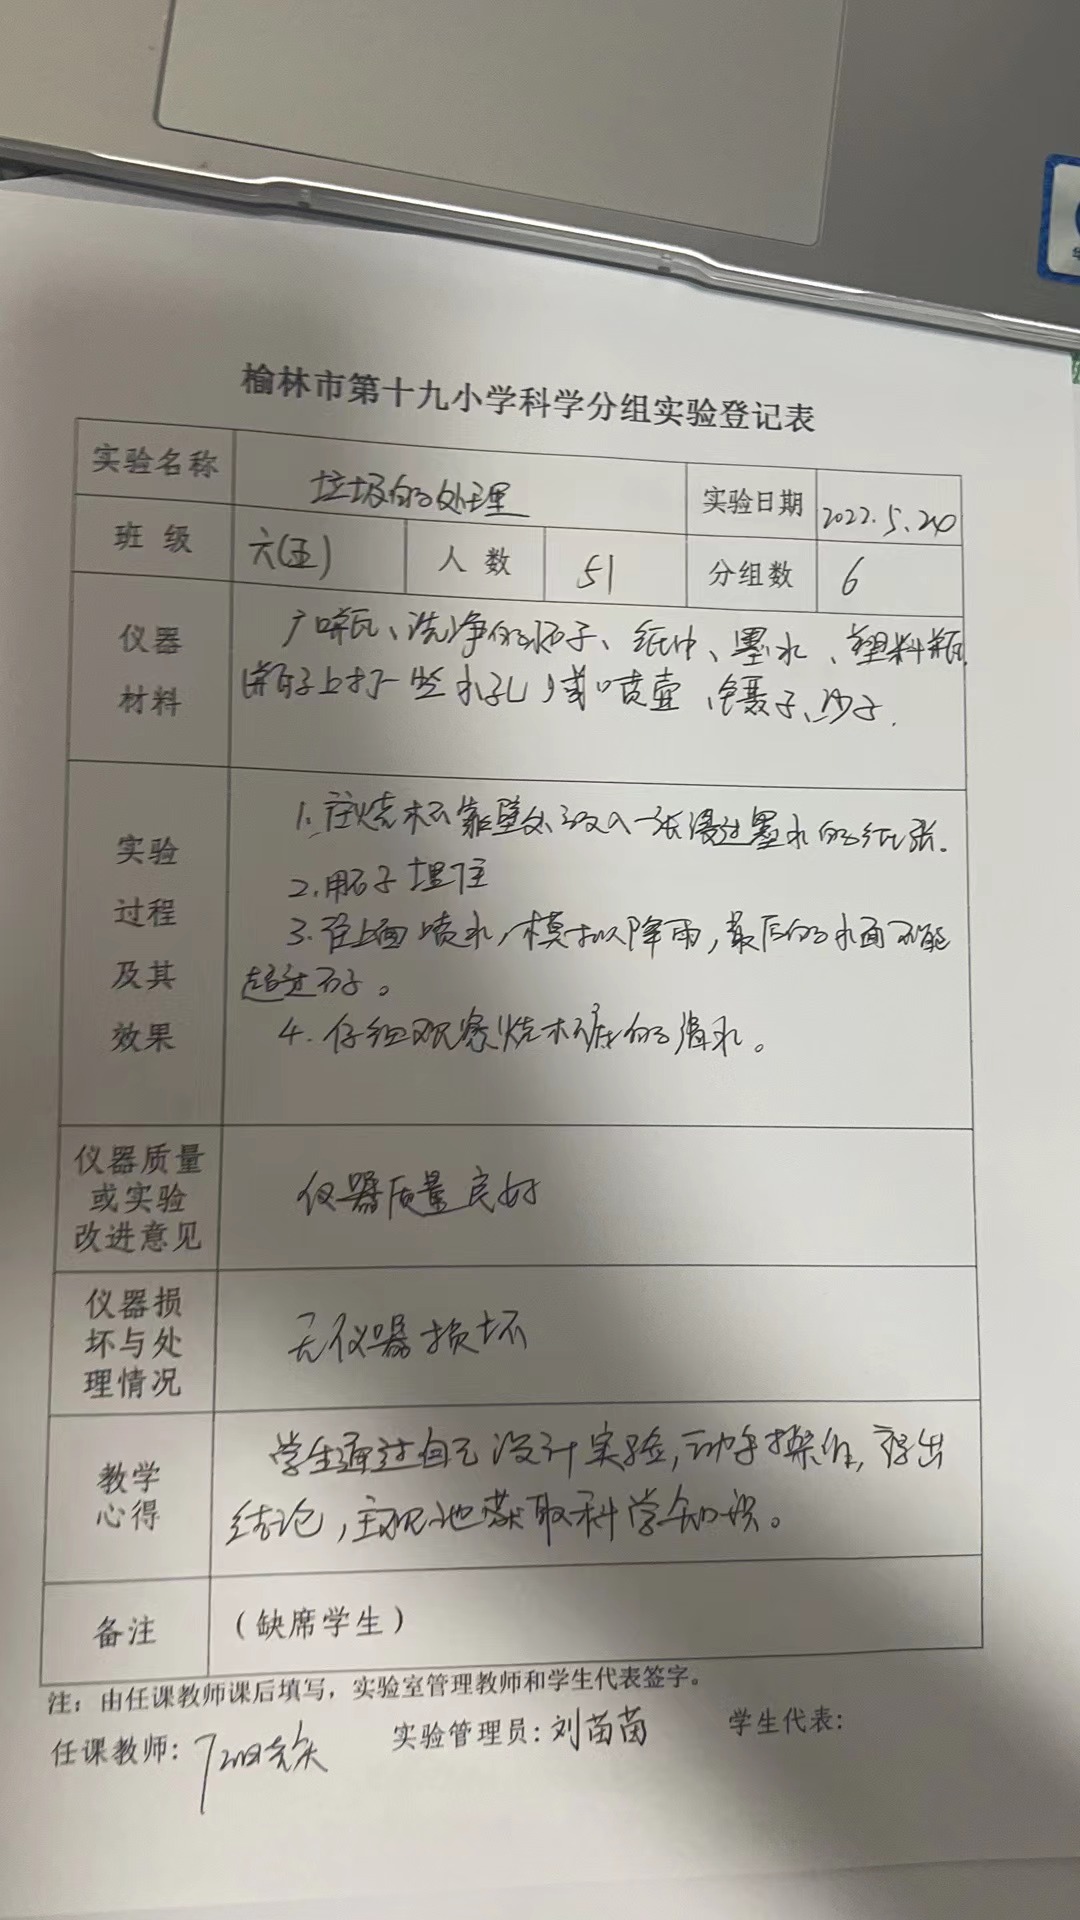 榆林市第十九小学科学分组实验登记表
实验名称 垃圾的处理 实验日期 2022.5.20
班级 六(五) 人数 51 分组数 6
仪器材料
广口瓶、洗净的石子、纸巾、墨水、塑料瓶
(瓶子上打一些小孔)或喷壶、镊子、沙子.
实验过程及其效果
1.在烧杯靠壁处放入一张浸过墨水的纸张.
2.用石子埋住
3.在上面喷水,模拟降雨,最后的水面不能
超过石子。
4.仔细观察烧杯底的清水。
仪器质量或实验改进意见
仪器质量良好
仪器损坏与处理情况
无仪器损坏
教学心得
学生通过自己设计实验,动手操作,得出
结论,主观地获取科学知识。
备注 (缺席学生)
注:由任课教师课后填写,实验室管理教师和学生代表签字。
任课教师: 实验管理员:刘苗苗 学生代表: